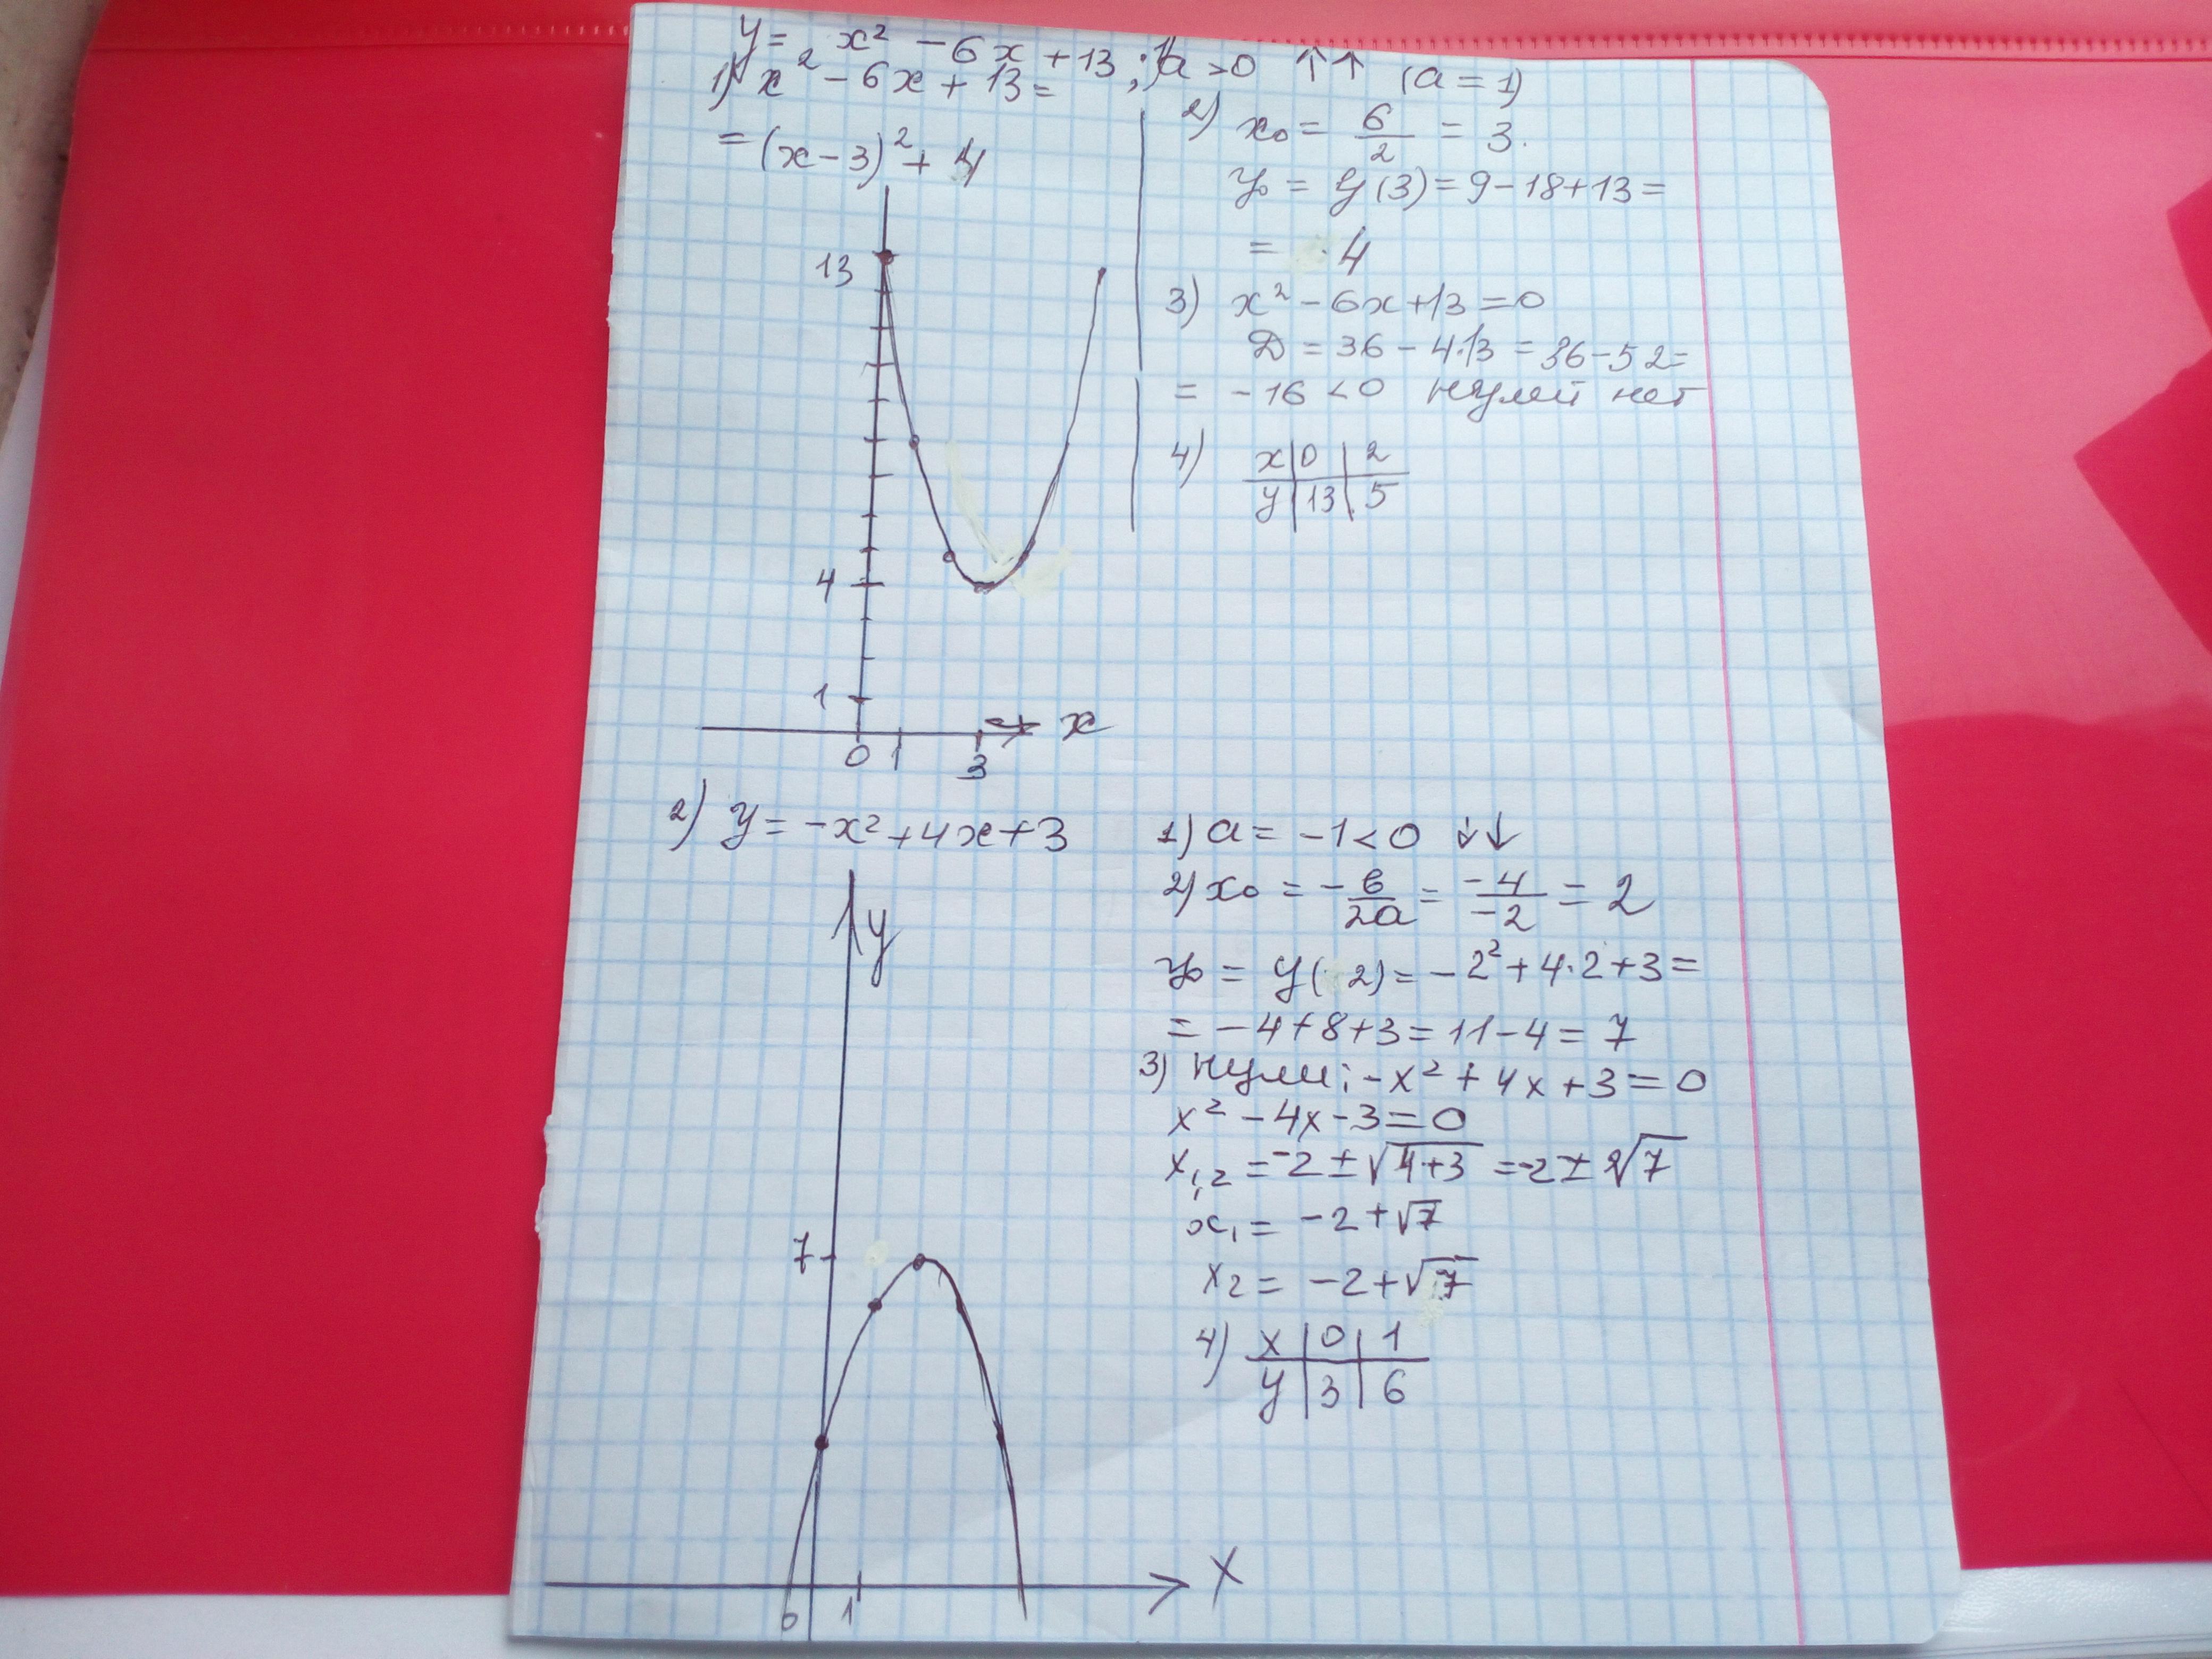 y = x² - 6x + 13; 1) a > 0 ↑↑ (a = 1)
1) x² - 6x + 13 =
= (x - 3)² + 4
2) x₀ = 6/2 = 3.
y₀ = y(3) = 9 - 18 + 13 =
= 4
3) x² - 6x + 13 = 0
D = 36 - 4·13 = 36 - 52 =
= -16 < 0 нулей нет
4) x | 0 | 2
y | 13 | 5
13
4
1
x
0 1 3
2) y = -x² + 4x + 3
1) a = -1 < 0 ↓↓
2) x₀ = -в/2a = -4/-2 = 2
y₀ = y(2) = -2² + 4·2 + 3 =
= -4 + 8 + 3 = 11 - 4 = 7
3) нули: -x² + 4x + 3 = 0
x² - 4x - 3 = 0
x₁,₂ = -2 ± √4+3 = -2 ± √7
x₁ = -2 + √7
x₂ = -2 + √7
4) x | 0 | 1
y | 3 | 6
y
7
x
0 1